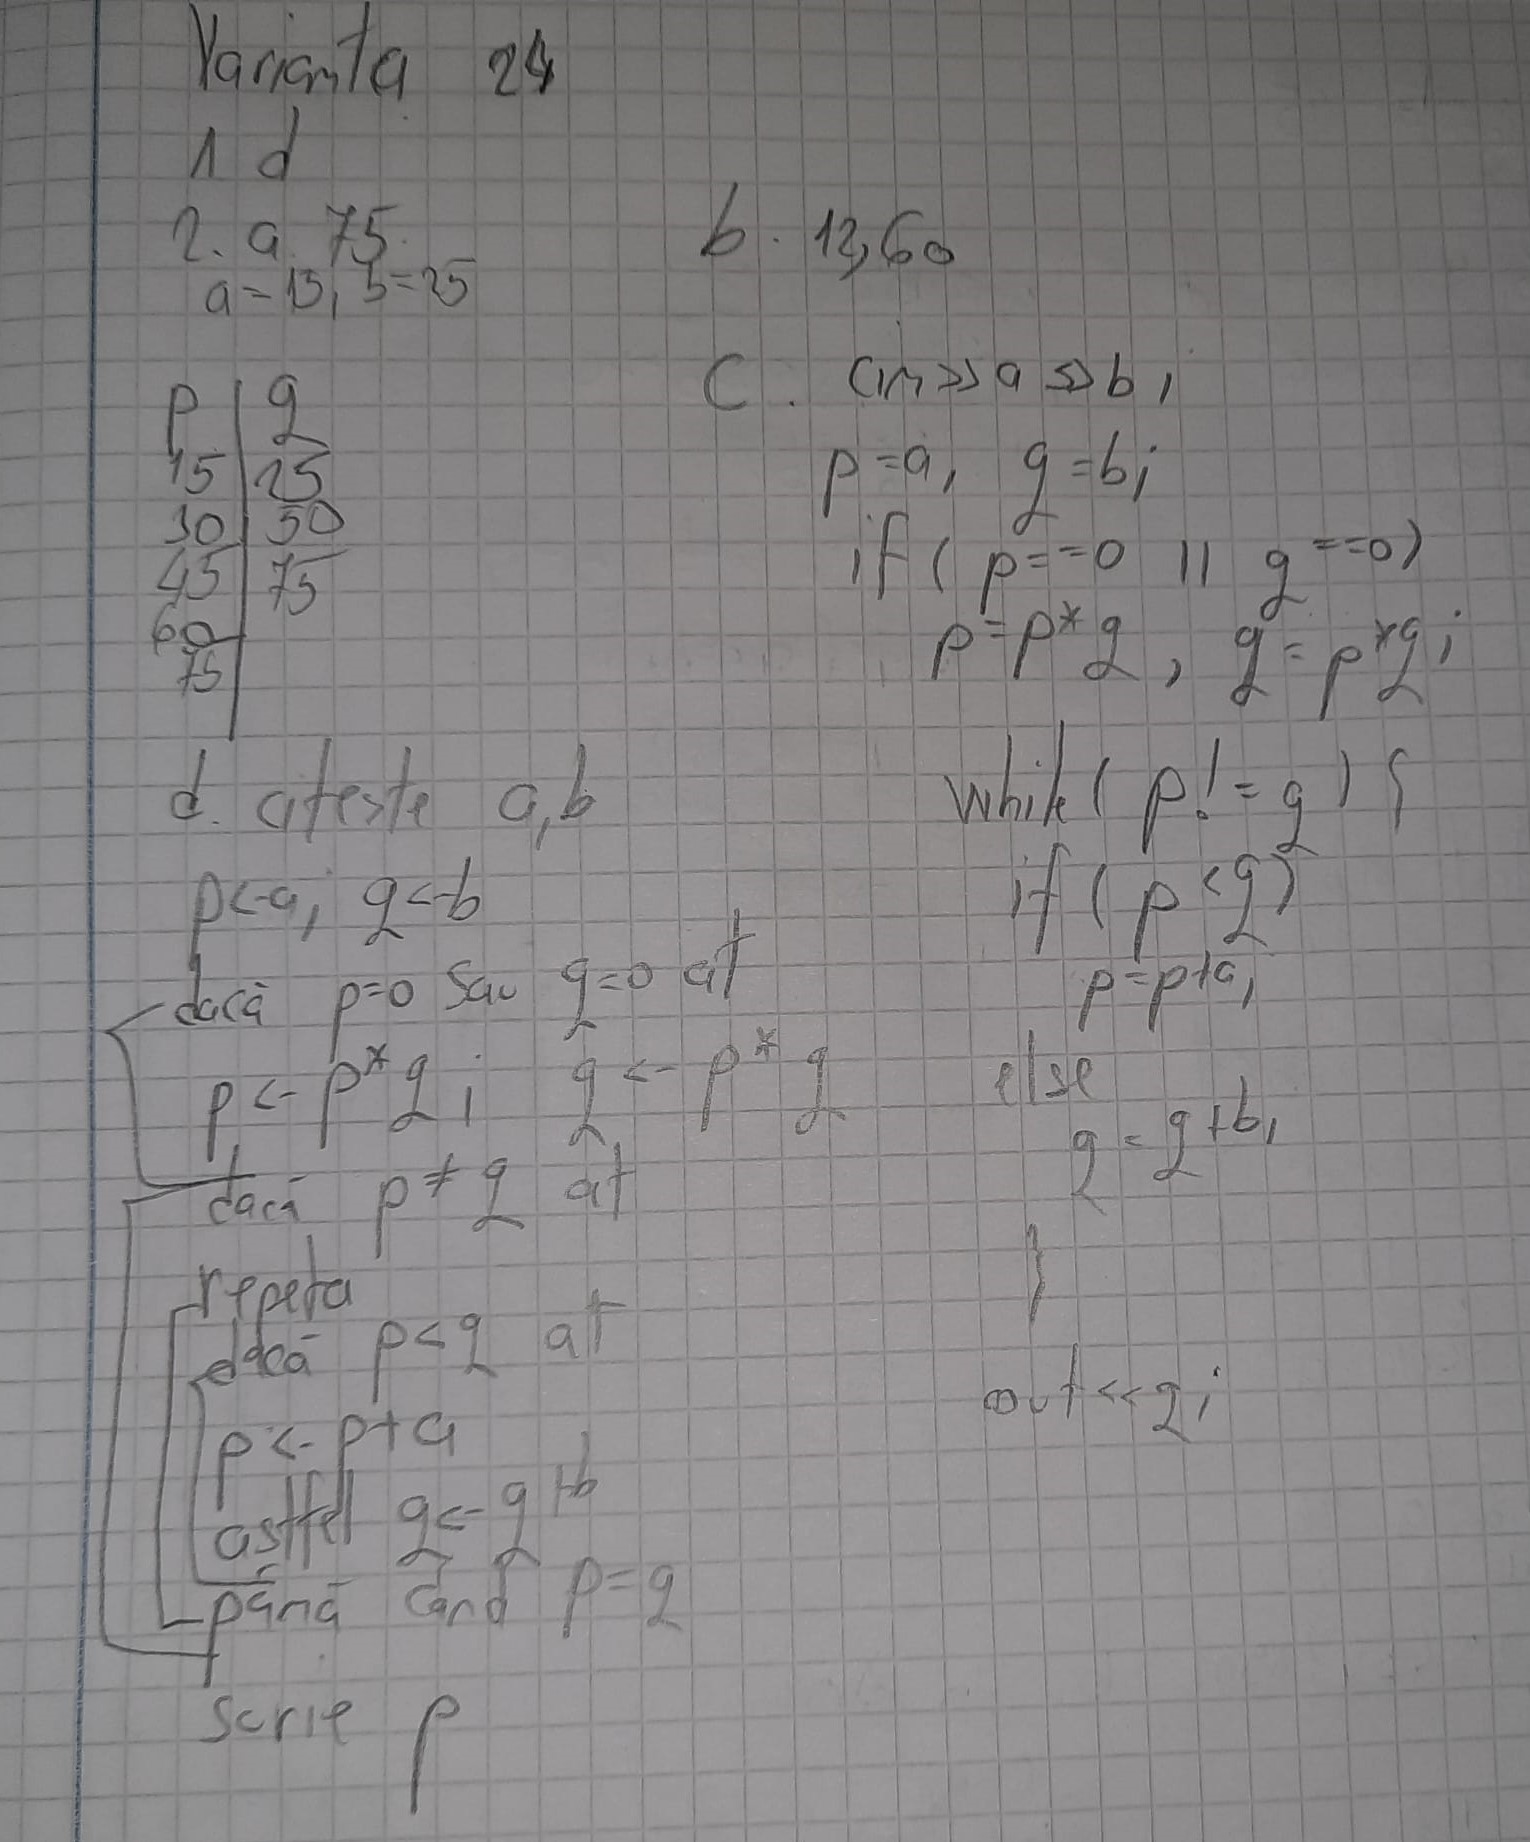 Varianta 24
1 d
2. a. 75
a=15, b=25
p | q
15 | 25
30 | 50
45 | 75
60
75
b. 12,60
c. cin>>a>>b;
p=a, q=b;
if ( p==0 || q==0)
p=p*q, q=p*q;
while ( p!=q ) {
if ( p<q)
p=p+a;
else
q=q+b;
}
cout<<q;
d. citește a,b
p<-a; q<-b
dacă p=0 sau q=0 at
p<-p*q; q<-p*q
dacă p≠q at
repeta
dacă p<q at
p<-p+a
astfel q<-q+b
până când p=q
scrie p